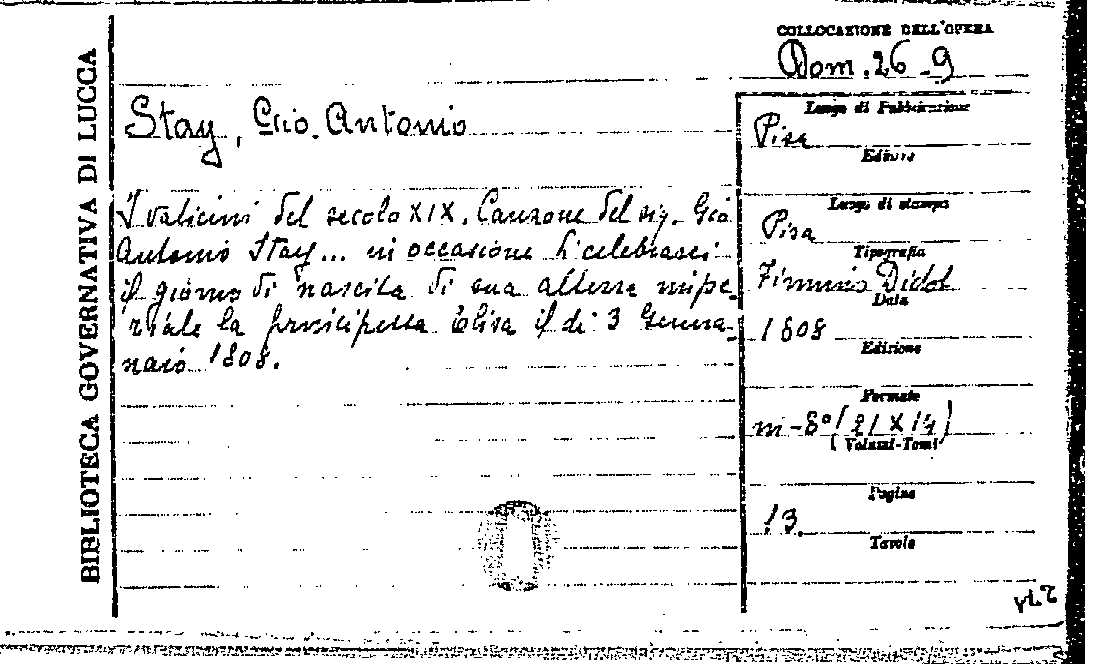 BIBLIOTECA GOVERNATIVA DI LUCCA
COLLOCAZIONE DELL'OPERA
Dom. 26-9
Stay, Gio. Antonio
I vaticini del secolo XIX. Canzone del sig. Gio
Antonio Stay... in occasione di celebrarsi
il giorno di nascita di sua altezza impe-
riale la principessa Elisa il di 3 Genna-
naio 1808.
Luogo di Pubblicazione
Pisa
Editore
Luogo di stampa
Pisa
Tipografia
Firmino Didot
Data
1808
Edizione
Formato
in-8° (21 X 14)
(Volumi-Tomi)
Pagine
13.
Tavole